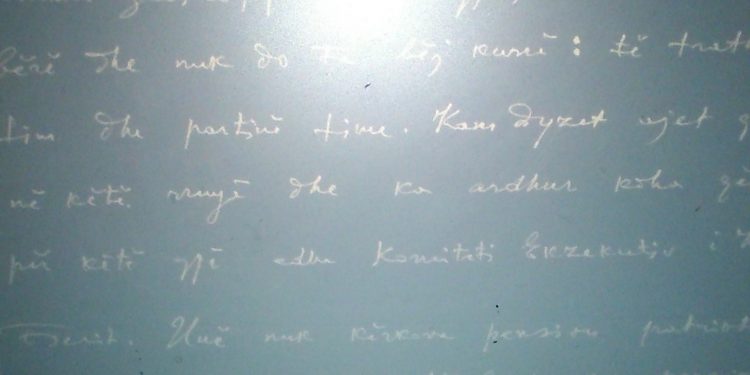 bërë dhe nuk do të bëj kurrë: të trat
tim dhe partinë time. Kam dyzet vjet
në këtë rrugë dhe ka ardhur koha që
për këtë gjë edhe Komiteti Ekzekutiv i
Beratit. Unë nuk kërkova pension patriot